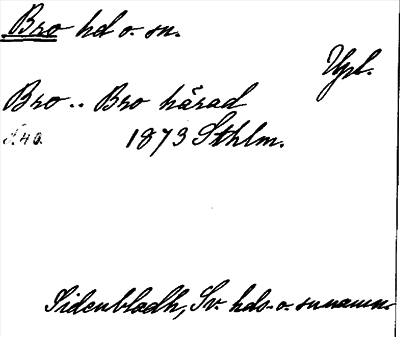 Bro hd o. sn.
Upl.
Bro.. Bro härad
S. 40. 1873 Sthlm.
Sidenbladh, Sv. hds- o. sunamn.